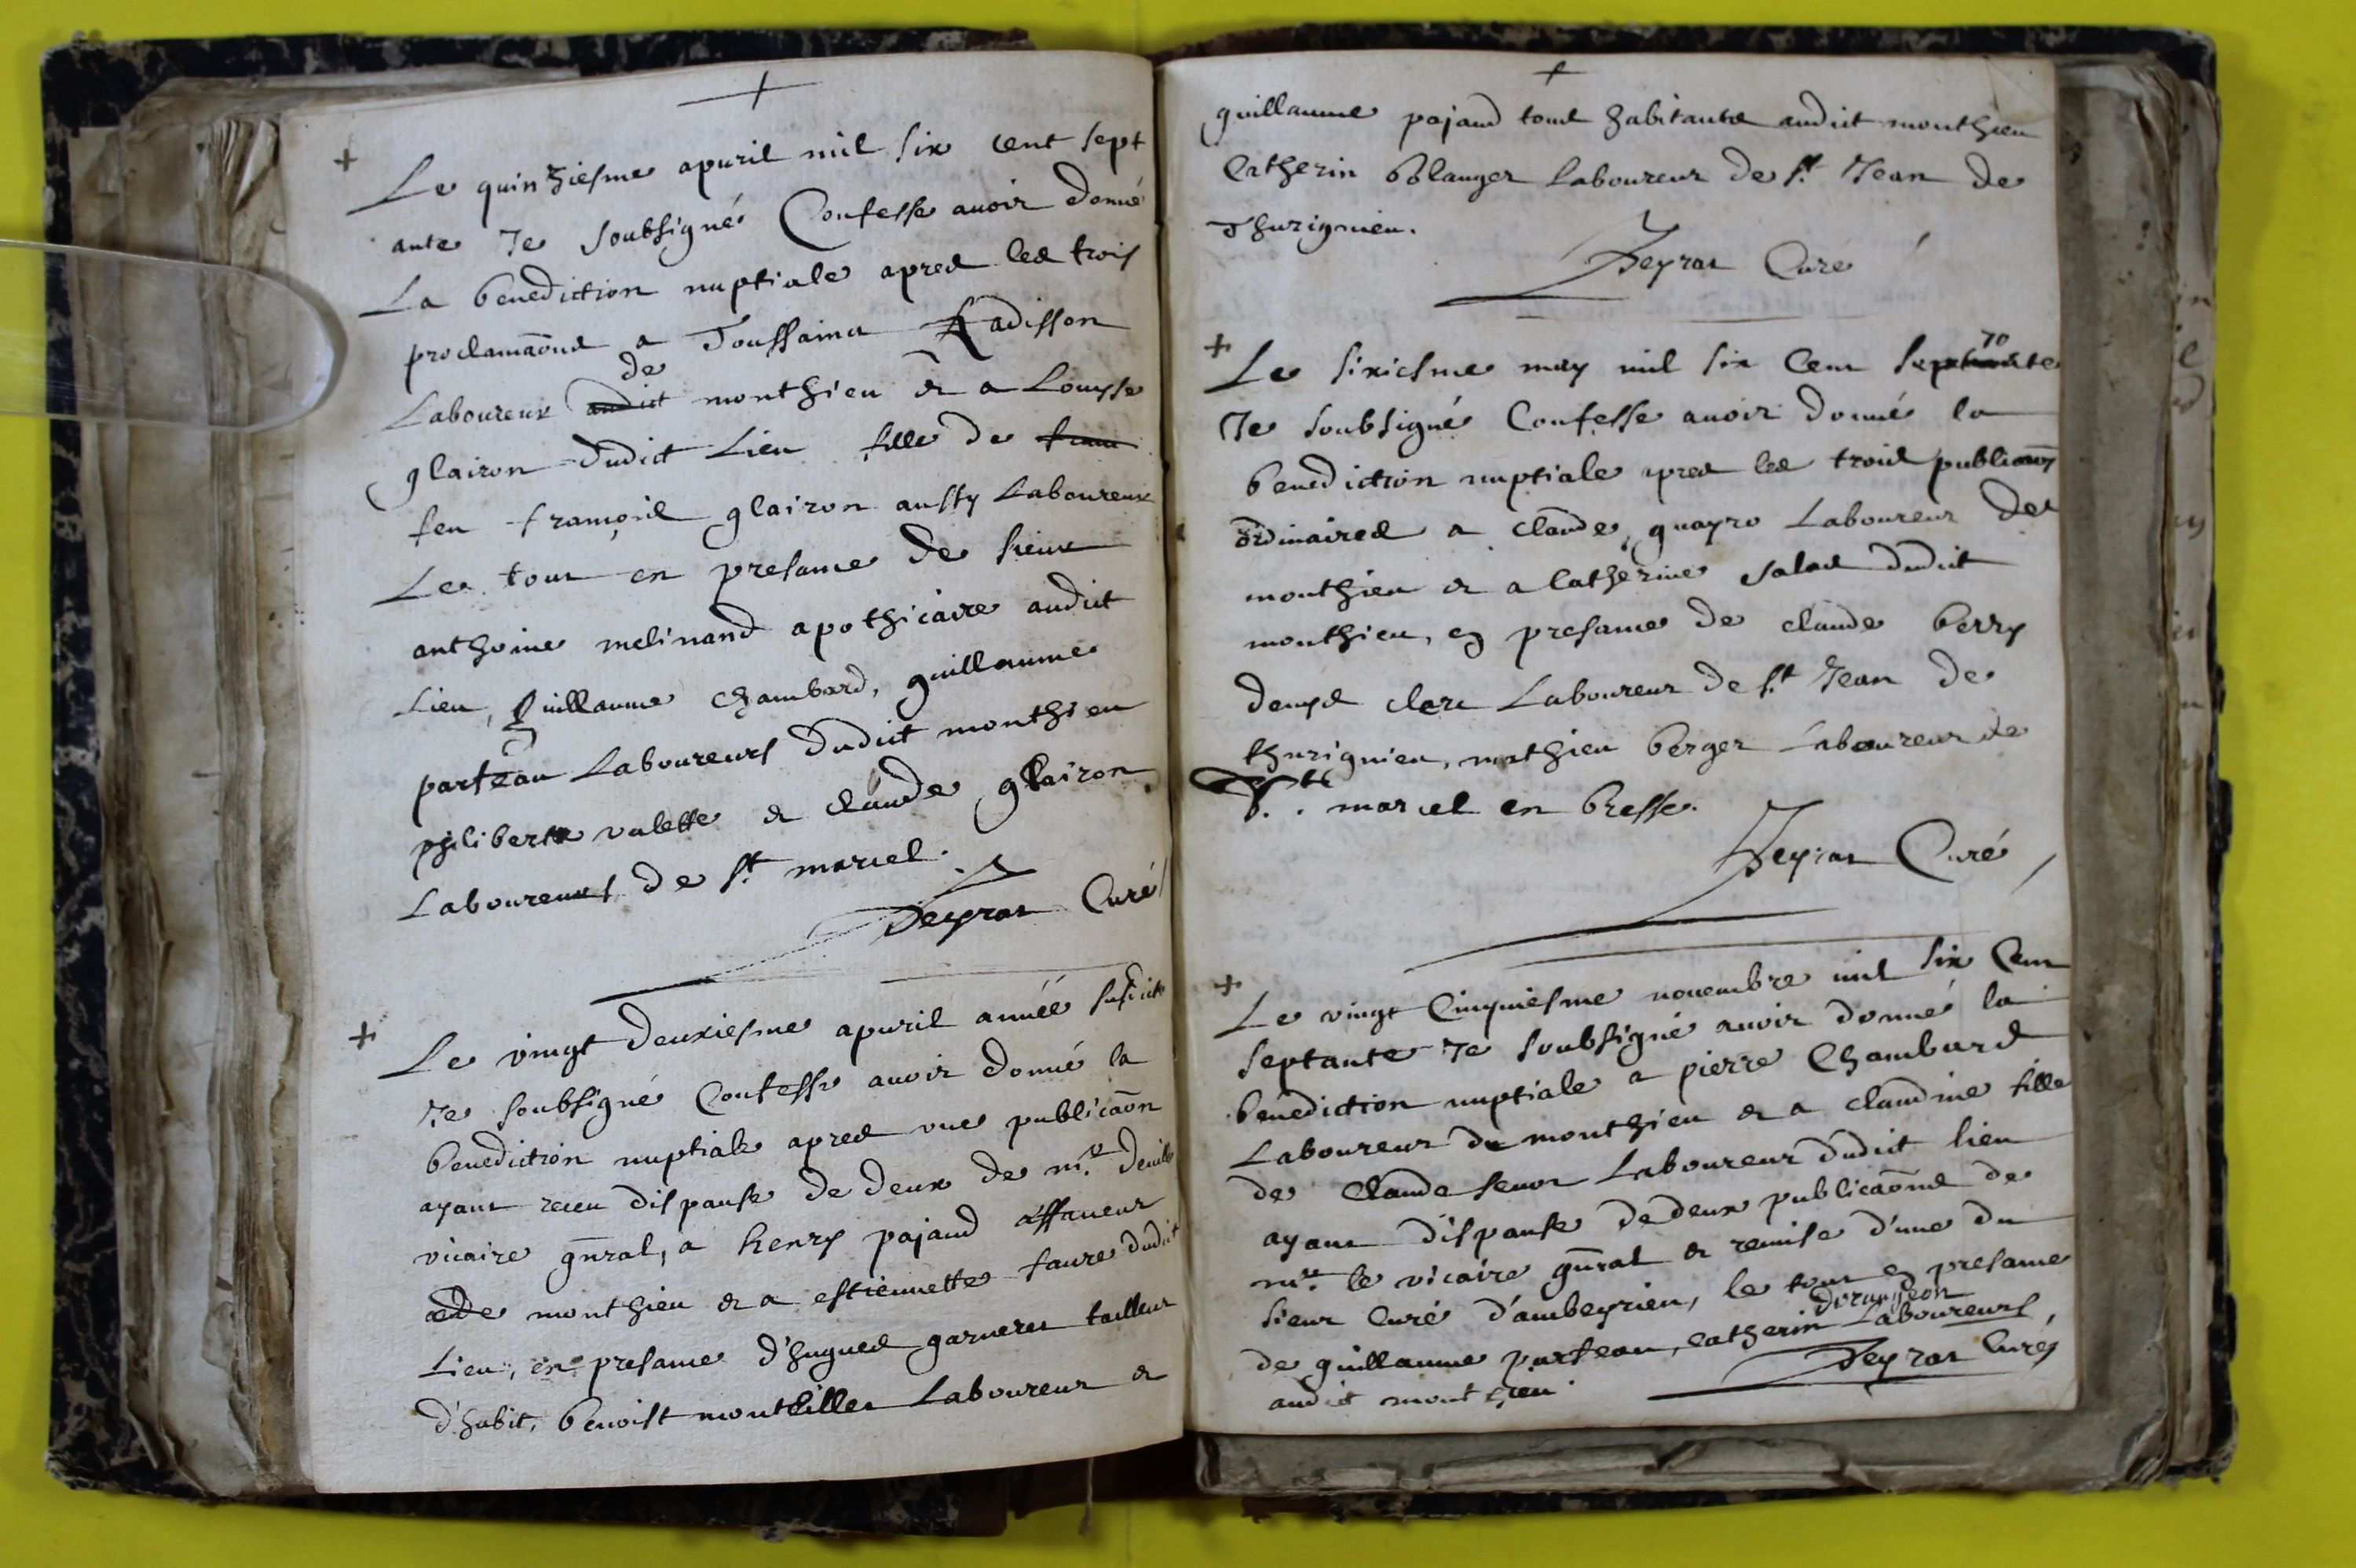 Le quinziesme apuril mil six cent sept
ante Je soubsigné Confesse auoir donné
La benediction nuptiale apres les trois
proclamaōns a Toussainct Radisson
Laboureur de monthieu & a Louyse
glairon dudict Lieu fille de
feu françois glairon aussy Laboureur
Le tout en presance de sieur
anthoine melinand apothicaire audict
Lieu, guillaume chambard, guillaume
parteau Laboureurs dudict monthieu
philibert valette & claude glairon
Laboureurs de st marcel.
Curé
Le vingt deuxiesme apuril année susdicte
Je soubsigné Confesse auoir donné la
benediction nuptiale apres vne publicaōn
ayant receu dispanse de deux de mr deuille
vicaire gnral, a henry pajaud affaneur
de monthieu & a estiennette faure dudict
Lieu, en presance d'hugues garneret tailleur
d'habit, benoist monteiller Laboureur &
guillaume pajaud tous habitants audict monthieu
Catherin bolanger Laboureur de st Jean de
Thurignieu.
Curé
Le sixiesme may mil six Cent 70
Je soubsigné Confesse auoir donné la
benediction nuptiale apres les trois publicaōns
ordinaires a claude guayro Laboureur de
monthieu & a catherine salad dudict
monthieu, en presance de claude berry
denys clerc Laboureur de st Jean de
thurignieu, mathieu berger Laboureur de
St. marcel en bresse.
Curé
Le vingt Cinquiesme nouembre mil six Cent
septante Je soubsigné auoir donné la
benediction nuptiale a pierre Chambard
Laboureur de monthieu & a claudine fille
de Claude Laboureur dudict lieu
ayant dispanse de deux publicaōns de
mr. le vicaire gnral & remise d'une du
sieur Curé d'ambeyrieu, le tout en presance
de guillaume parteau, catherin dorangeon Laboureurs
audict monthieu. Curé